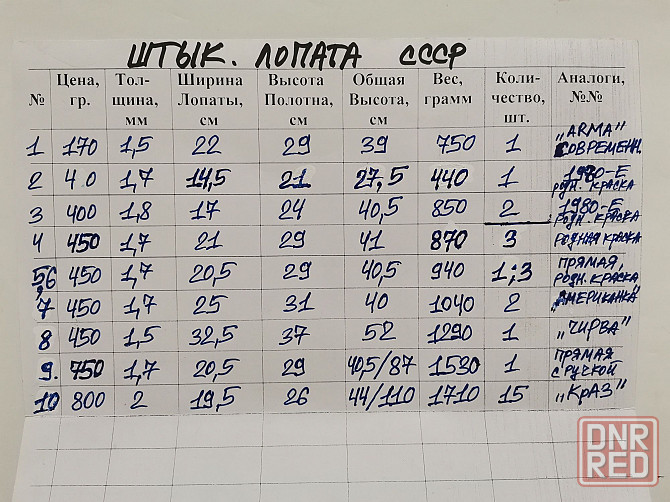 ШТЫК. ЛОПАТА СССР
№ Цена, гр. Тол-щина, мм Ширина Лопаты, см Высота Полотна, см Общая Высота, см Вес, грамм Коли-чество, шт. Аналоги, №№
1 170 1,5 22 29 39 750 1 „ARMA" СОВРЕМЕНН.
2 4.0 1,7 14,5 21 27,5 440 1 1980-Е РОДН. КРАСКА
3 400 1,8 17 24 40,5 850 2 1980-Е РОДН. КРАСКА
4 450 1,7 21 29 41 870 3 РОДНАЯ КРАСКА
5,6 450 1,7 20,5 29 40,5 940 1;3 ПРЯМАЯ, РОДН. КРАСКА
7 450 1,7 25 31 40 1040 2 „АМЕРИКАНКА"
8 450 1,5 32,5 37 52 1290 1 „ЧИРВА"
9. 750 1,7 20,5 29 40,5/87 1530 1 ПРЯМАЯ С РУЧКОЙ
10 800 2 19,5 26 44/110 1710 15 „КрАЗ"
DNR
RED